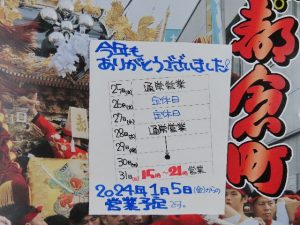 今年も
ありがとうございました!
25日(水) 通常営業
26日(木) 定休日
27日(金) 定休日
28日(土) 通常営業
29日(日)
30日(月)
31日(火) 15時〜21時営業
2024年1月5日(金)からの
営業予定です。
都倉町